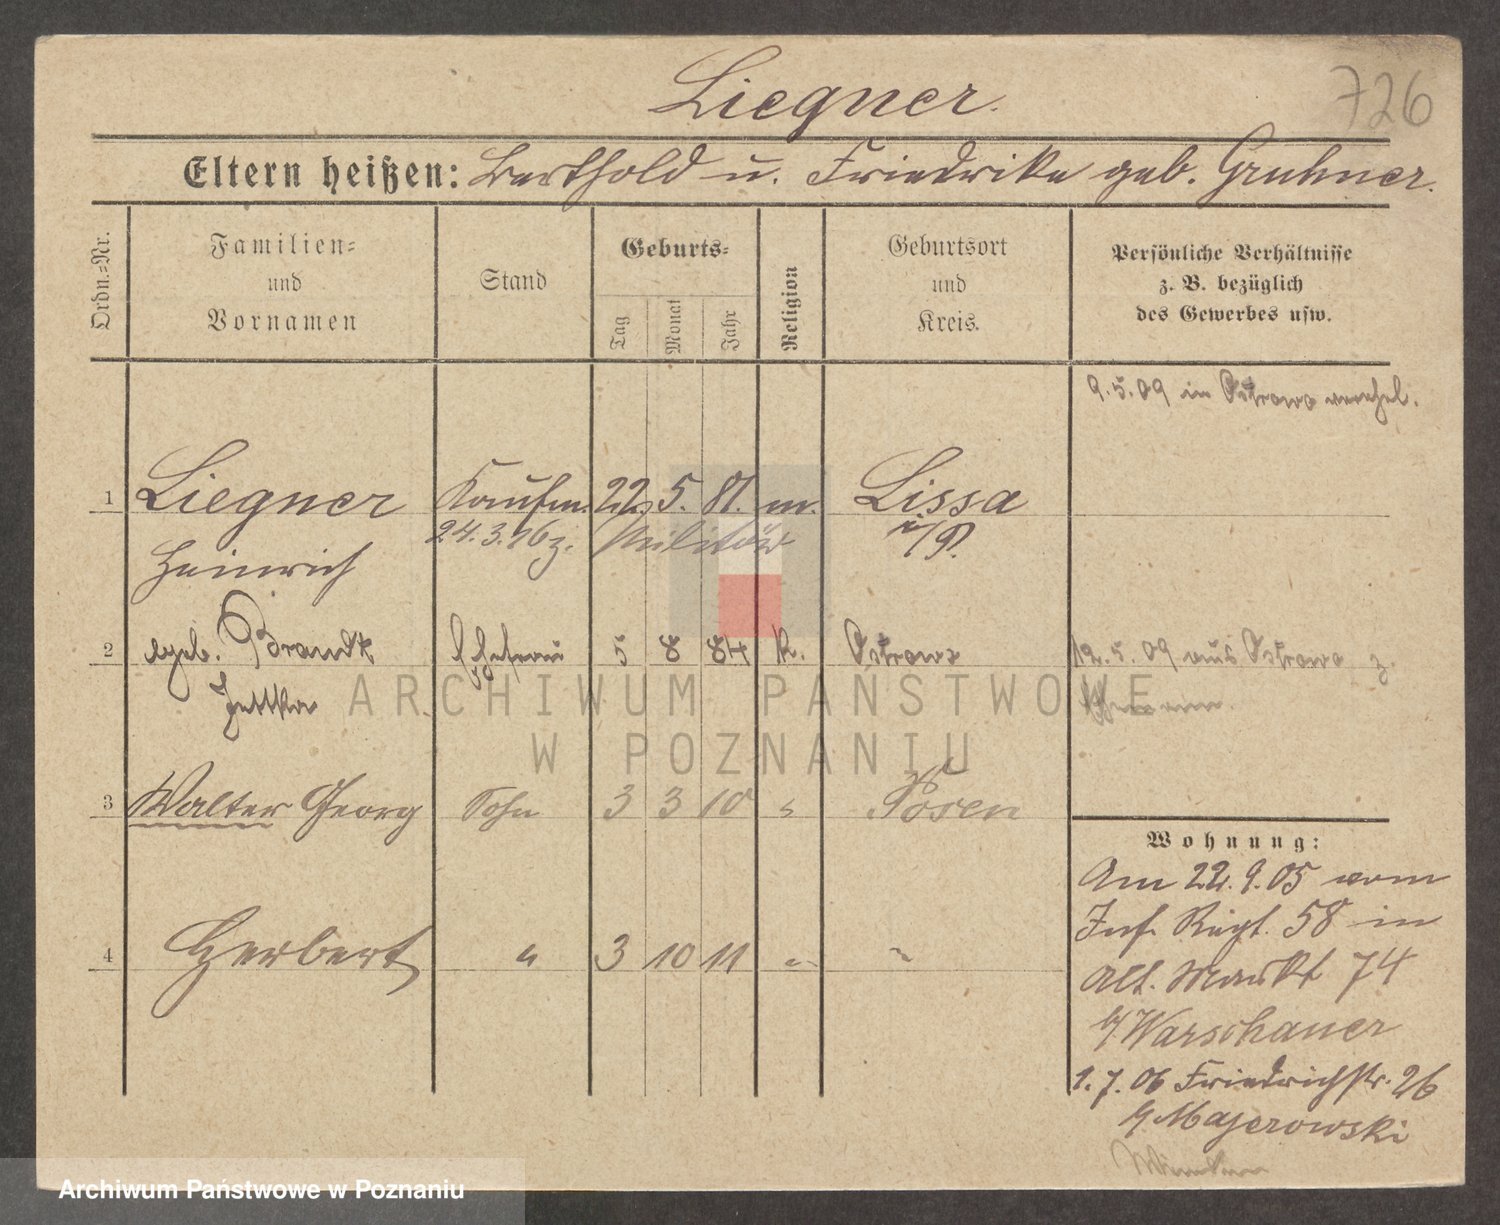 Liegner.
726
Eltern heißen: Berthold u. Friedrike geb. Gruhner.
Ordn.=Nr.
Familien=
und
Vornamen
Stand
Geburts=
Tag
Monat
Jahr
Religion
Geburtsort
und
Kreis.
Persönliche Verhältnisse
z. B. bezüglich
des Gewerbes usw.
9.5.09 in Ostrowo verehel.
1 Liegner Kaufm. 22. 5. 81. m. Lissa
24.3.16 z. Militär i/P.
Heinrich
2 geb. Brandt Ehefrau 5 8 84 k. Ostrowo 12.5.09 aus Ostrowo z.
Jettka
ARCHIWUM PAŃSTWOWE
W POZNANIU
3 Walter Georg Sohn 3 3 10 " Posen
Wohnung:
Am 22.9.05 vom
Inf. Regt. 58 in
4 Herbert " 3 10 11 " "
Alt. Markt 74
b/ Warschauer
1.7.06 Friedrichstr. 26
b/ Majerowski
Archiwum Państwowe w Poznaniu